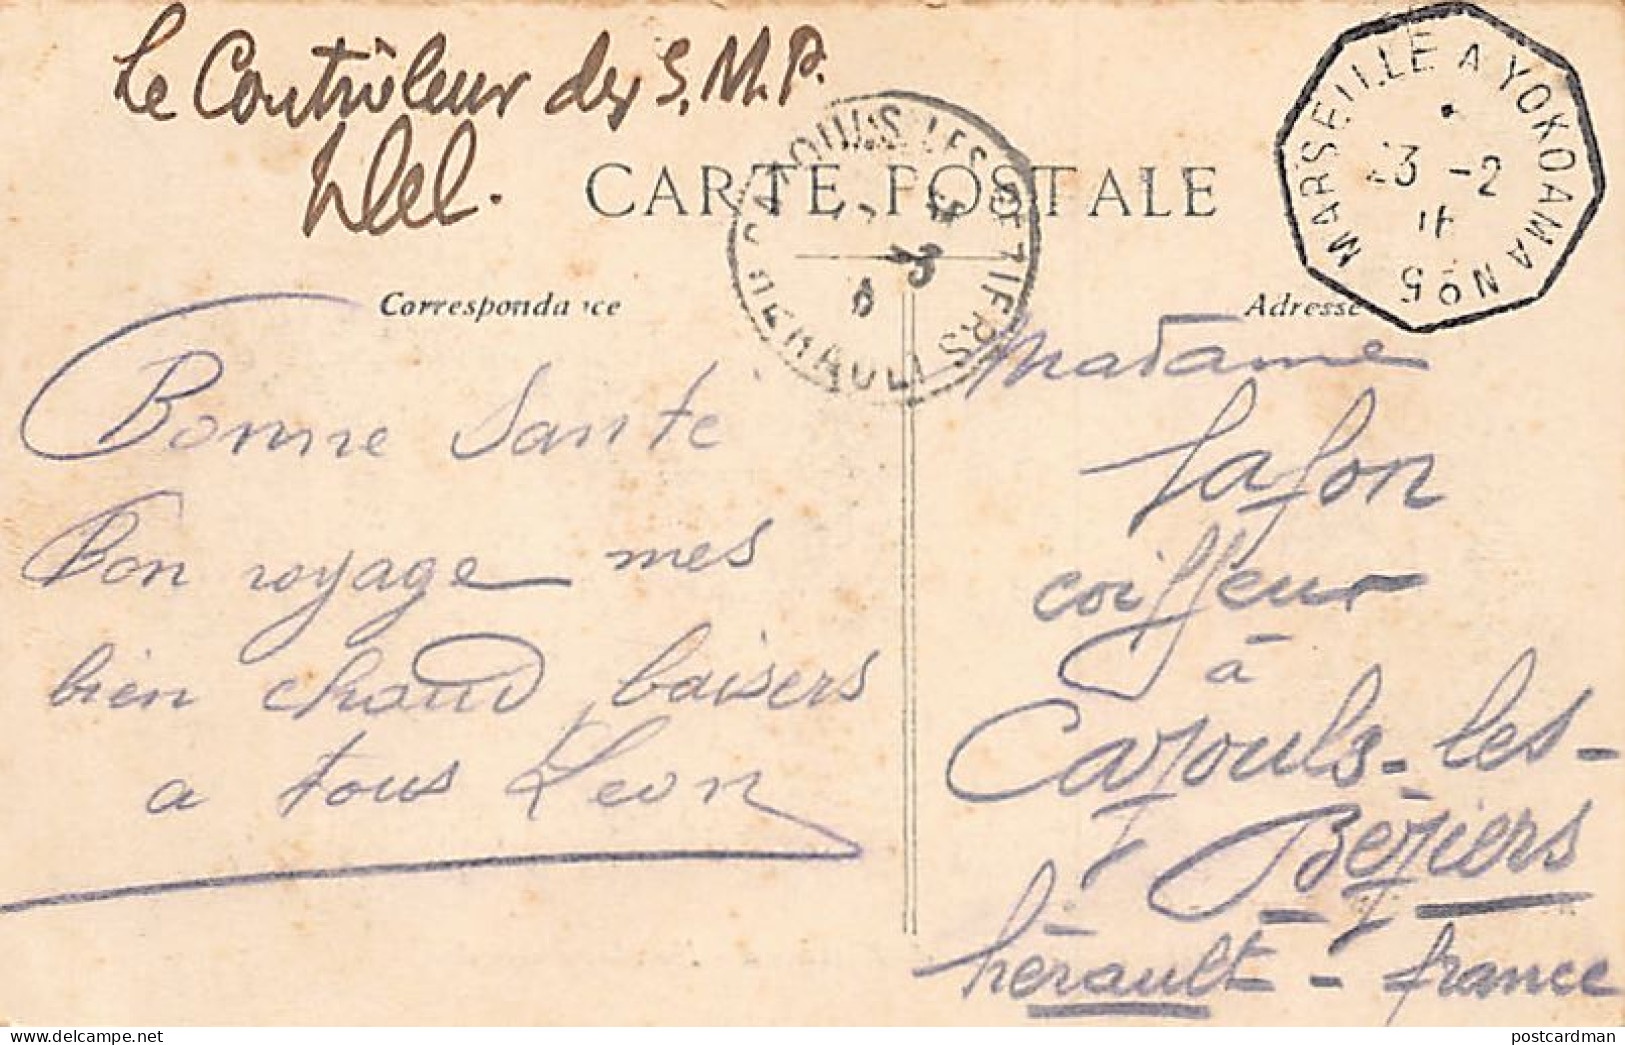 Le Contrôleur des S.M.P.
CARTE POSTALE
MARSEILLE A YOKOAMA No 5
23 -2
16
CAZOULS LES BEZIERS
HERAULT
Correspondance
Adresse
Bonne Sante
Bon voyage mes
bien chaud baisers
a tous Leon
Madame
Lafon
coiffeur
à
Cazouls-les-
Béziers
hérault - france
postcardman